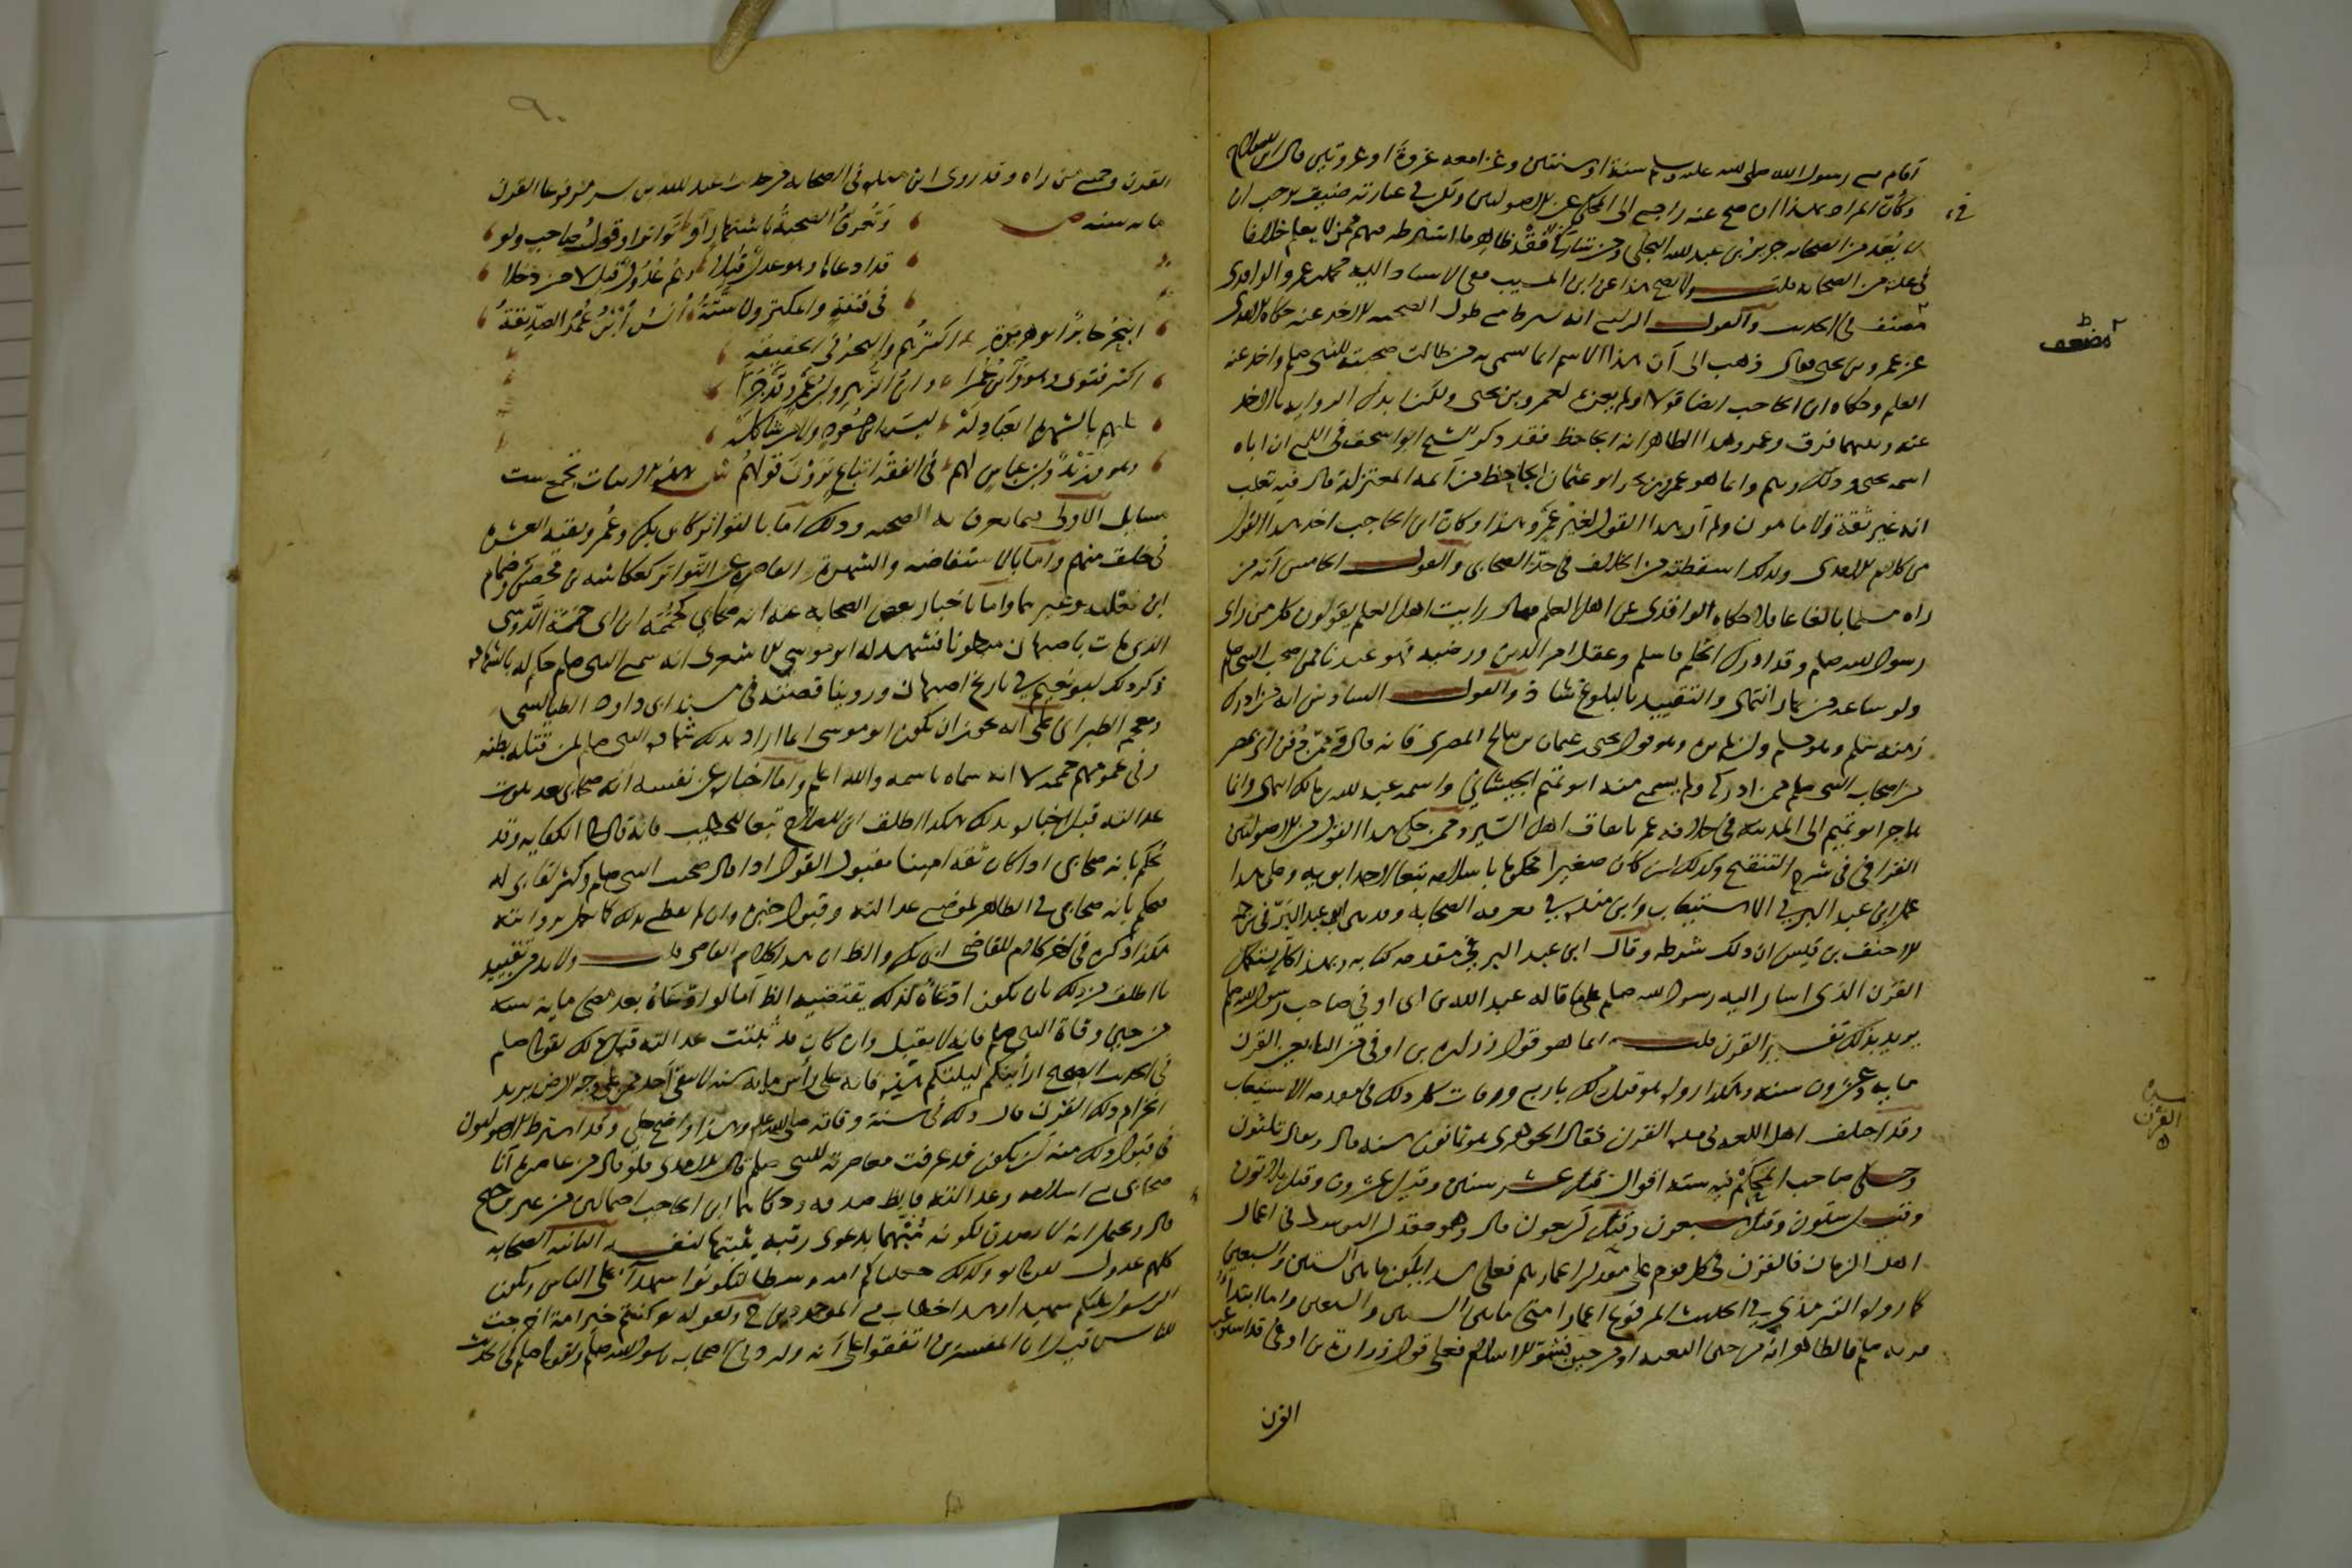 اقام مع رسول الله صلى الله عليه وسلم سنة او سنتين وغزا معه غزوة او غزوتين قال ابن الصلاح
وكان المراد بهذا ان صح عنه راجع الى المحكي عن الاصوليين ولكن في عبارته ضيق يوجب ان
لا يعد من الصحابه جرير بن عبد الله البجلي ومن شاركه في فقد ظاهر ما اشترطه فيهم ممن لا يعلم خلافا
في عده من الصحابه قلت ولا يصح هذا عن ابن المسيب ففي الاسناد اليه محمد بن عمر الواقدي
ضعيف في الحديث والقول الرابع انه يشترط مع طول الصحبه الاخذ عنه حكاه الامدي
عن عمرو بن يحيى فقال ذهب الى ان هذا الاسم انما يسمى به من طالت صحبته للنبي صلعم واخذ عنه
العلم وحكاه ابن الحاجب ايضا قولا ولم يعزه لعمرو بن يحيى ولكن ابدل الروايه بالاخذ
عنه وبينهما فرق وعمرو هذا الظاهر انه الجاحظ فقد ذكر الشيخ ابو اسحق في اللمع ان اباه
اسمه يحيى وذلك وهم وانما هو عمرو بن بحر ابو عثمان الجاحظ من ائمه المعتزلة قال فيه ثعلب
انه غير ثقة ولا مامون ولم ار هذا القول لغير عمرو هذا وكان ابن الحاجب اخذ هذا القول
من كلام الامدي ولذلك اسقطته من الخلاف في حد الصحابي والقول الخامس انه من
راه مسلما بالغا عاقلا حكاه الواقدي عن اهل العلم فقال رايت اهل العلم يقولون كل من راى
رسول الله صلعم وقد ادرك الحلم فاسلم وعقل امر الدين ورضيه فهو عندنا ممن صحب النبي صلعم
ولو ساعه من نهار انتهى والتقييد بالبلوغ شاذ والقول السادس انه من ادرك
زمنه صلعم وهو مسلم وان لم يره وهو قول يحيى بن عثمان بن صالح المصري فانه قال وممن دفن اي بمصر
من اصحاب النبي صلعم ممن ادركه ولم يسمع منه ابو تميم الجيشاني واسمه عبد الله بن مالك انتهى وانما
هاجر ابو تميم الى المدينه في خلافه عمر باتفاق اهل السير وممن حكى هذا القول من الاصوليين
القرافي في شرح التنقيح وكذلك ان كان صغيرا محكوما باسلامه تبعا لاحد ابويه وعلى هذا
عمل ابن عبد البر في الاستيعاب وابن منده في معرفه الصحابه وقد بين ابن عبد البر في ترجمه
الاحنف بن قيس ان ذلك شرطه وقال ابن عبد البر في مقدمه كتابه وبهذا كله يستكمل
القرن الذي اشار اليه رسول الله صلعم على ما قاله عبد الله بن ابي اوفى صاحب رسول الله صلعم
يريد بذلك تفسير القرن قلت انما هو قول زراره بن اوفى من التابعين القرن
مايه وعشرون سنه وهكذا رواه هو قبل ذلك باربع ورقات كل ذلك في مقدمه الاستيعاب
وقد اختلف اهل اللغه في مده القرن فقال الجوهري هو ثمانون سنه قال ويقال ثلثون
وحكى صاحب المحكم فيه سته اقوال قيل عشر سنين وقيل عشرون وقيل ثلاثون
وقيل ستون وقيل سبعون وقيل اربعون قال وهو مقدار التوسط في اعمار
اهل الزمان فالقرن في كل قوم على مقدار اعمارهم فعلى هذا يكون ما بين الستين والسبعين
كما رواه الترمذي في الحديث المرفوع اعمار امتي ما بين الستين والسبعين واما ابتداء
قرنه صلعم فالظاهر انه من حين البعثه او من حين فشو الاسلام فعلى قول زرارة بن اوفى قد استوعب
القرن
في
ضعيف
مده
القرن
القرن جميع من راه وقد روى ابن منده في الصحابه من حديث عبد الله بن بسر مرفوعا القرن
مايه سنه ص وتعرف الصحبة باشتهار او تواتر او قول صاحب ولو
قد ادعاها وهو عدل قبلا وهم عدول قيل لا من دخلا
في فتنة والمكثرون ستة انس ابن عمر الصديقة
البحر جابر ابو هريرة اكثرهم والبحر في الحقيقة
اكثر فتوى وهو وابن عمرا وابن الزبير وابن عمرو قد جرى
عليهم بالشهرة العبادله ليس ابن مسعود ولا من شاكله
وهو وزيد وابن عباس لهم في الفقه اتباع يرون قولهم ش هذه الابيات تجمع ست
مسايل الاولى فيما تعرف به الصحبه وذلك اما بالتواتر كابي بكر وعمر وبقيه العشره
في خلق منهم واما بالاستفاضه والشهرة القاصرة عن التواتر كعكاشه بن محصن وضمام
ابن ثعلبه وغيرهما واما باخبار بعض الصحابه عنه انه صحابي كحممة بن ابي حممة الدوسي
الذي مات باصبهان مبطونا فشهد له ابو موسى الاشعري انه سمع النبي صلعم حكم له بالشهاده
ذكر ذلك ابو نعيم في تاريخ اصبهان وروينا قصته في مسند ابي داود الطيالسي
ومعجم الطبراني على انه يجوز ان يكون ابو موسى انما اراد بذلك شهادة النبي صلعم لمن قتله بطنه
وفي عمومهم حممه لا انه سماه باسمه والله اعلم واما اخباره عن نفسه انه صحابي بعد ثبوت
عدالته قبل اخباره بذلك هكذا اطلق ابن الصلاح تبعا للخطيب فانه قال في الكفايه وقد
نحكم بانه صحابي اذا كان ثقه امينا مقبول القول اذا قال صحبت النبي صلعم وكثر لقائي له
فيحكم بانه صحابي في الظاهر لموضع عدالته وقبول خبره وان لم يقطع بذلك كما يعمل بروايته
هكذا ذكره في اخر كلام القاضي ابي بكر والظ ان هذا كلام القاضي قلت ولابد من تقييد
ما اطلق من ذلك بان يكون ادعاؤه لذلك يقتضيه الظ اما لو ادعاه بعد مضي مايه سنه
من حين وفاة النبي صلعم فانه لا يقبل وان كان قد ثبتت عدالته قبل ذلك لقوله صلعم
في الحديث الصحيح ارايتكم ليلتكم هذه فانه على راس مايه سنه لا يبقى احد ممن على وجه الارض يريد
انخرام ذلك القرن قال ذلك في سنة وفاته صلى الله عليه وسلم وهذا واضح جلي وقد اشترط الاصوليون
في قبول ذلك منه ان يكون قد عرفت معاصرته للنبي صلعم قال الامدي فلو قال من عاصره انا
صحابي مع اسلامه وعدالته فالظ صدقه وحكاهما ابن الحاجب احتمالين من غير ترجيح
قال ويحتمل ان لا يصدق لكونه متهما بدعوى رتبه يثبتها لنفسه الثانيه الصحابه
كلهم عدول لقوله تعالى وكذلك جعلناكم امه وسطا لتكونوا شهداء على الناس ويكون
الرسول عليكم شهيدا وهذا خطاب مع الموجودين ح ولقوله تعالى كنتم خير امة اخرجت
للناس قيل ان المفسرين اتفقوا على انه وارد في اصحاب رسول الله صلعم ولقوله صلعم في الحديث